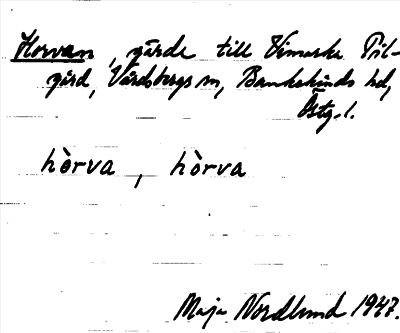 Horvan, gärde till Vimarka Pil-
gård, Vårdsbergs sn, Bankekinds hd,
Östg. l.
hòrva, hòrva
Maja Nordlund 1947.